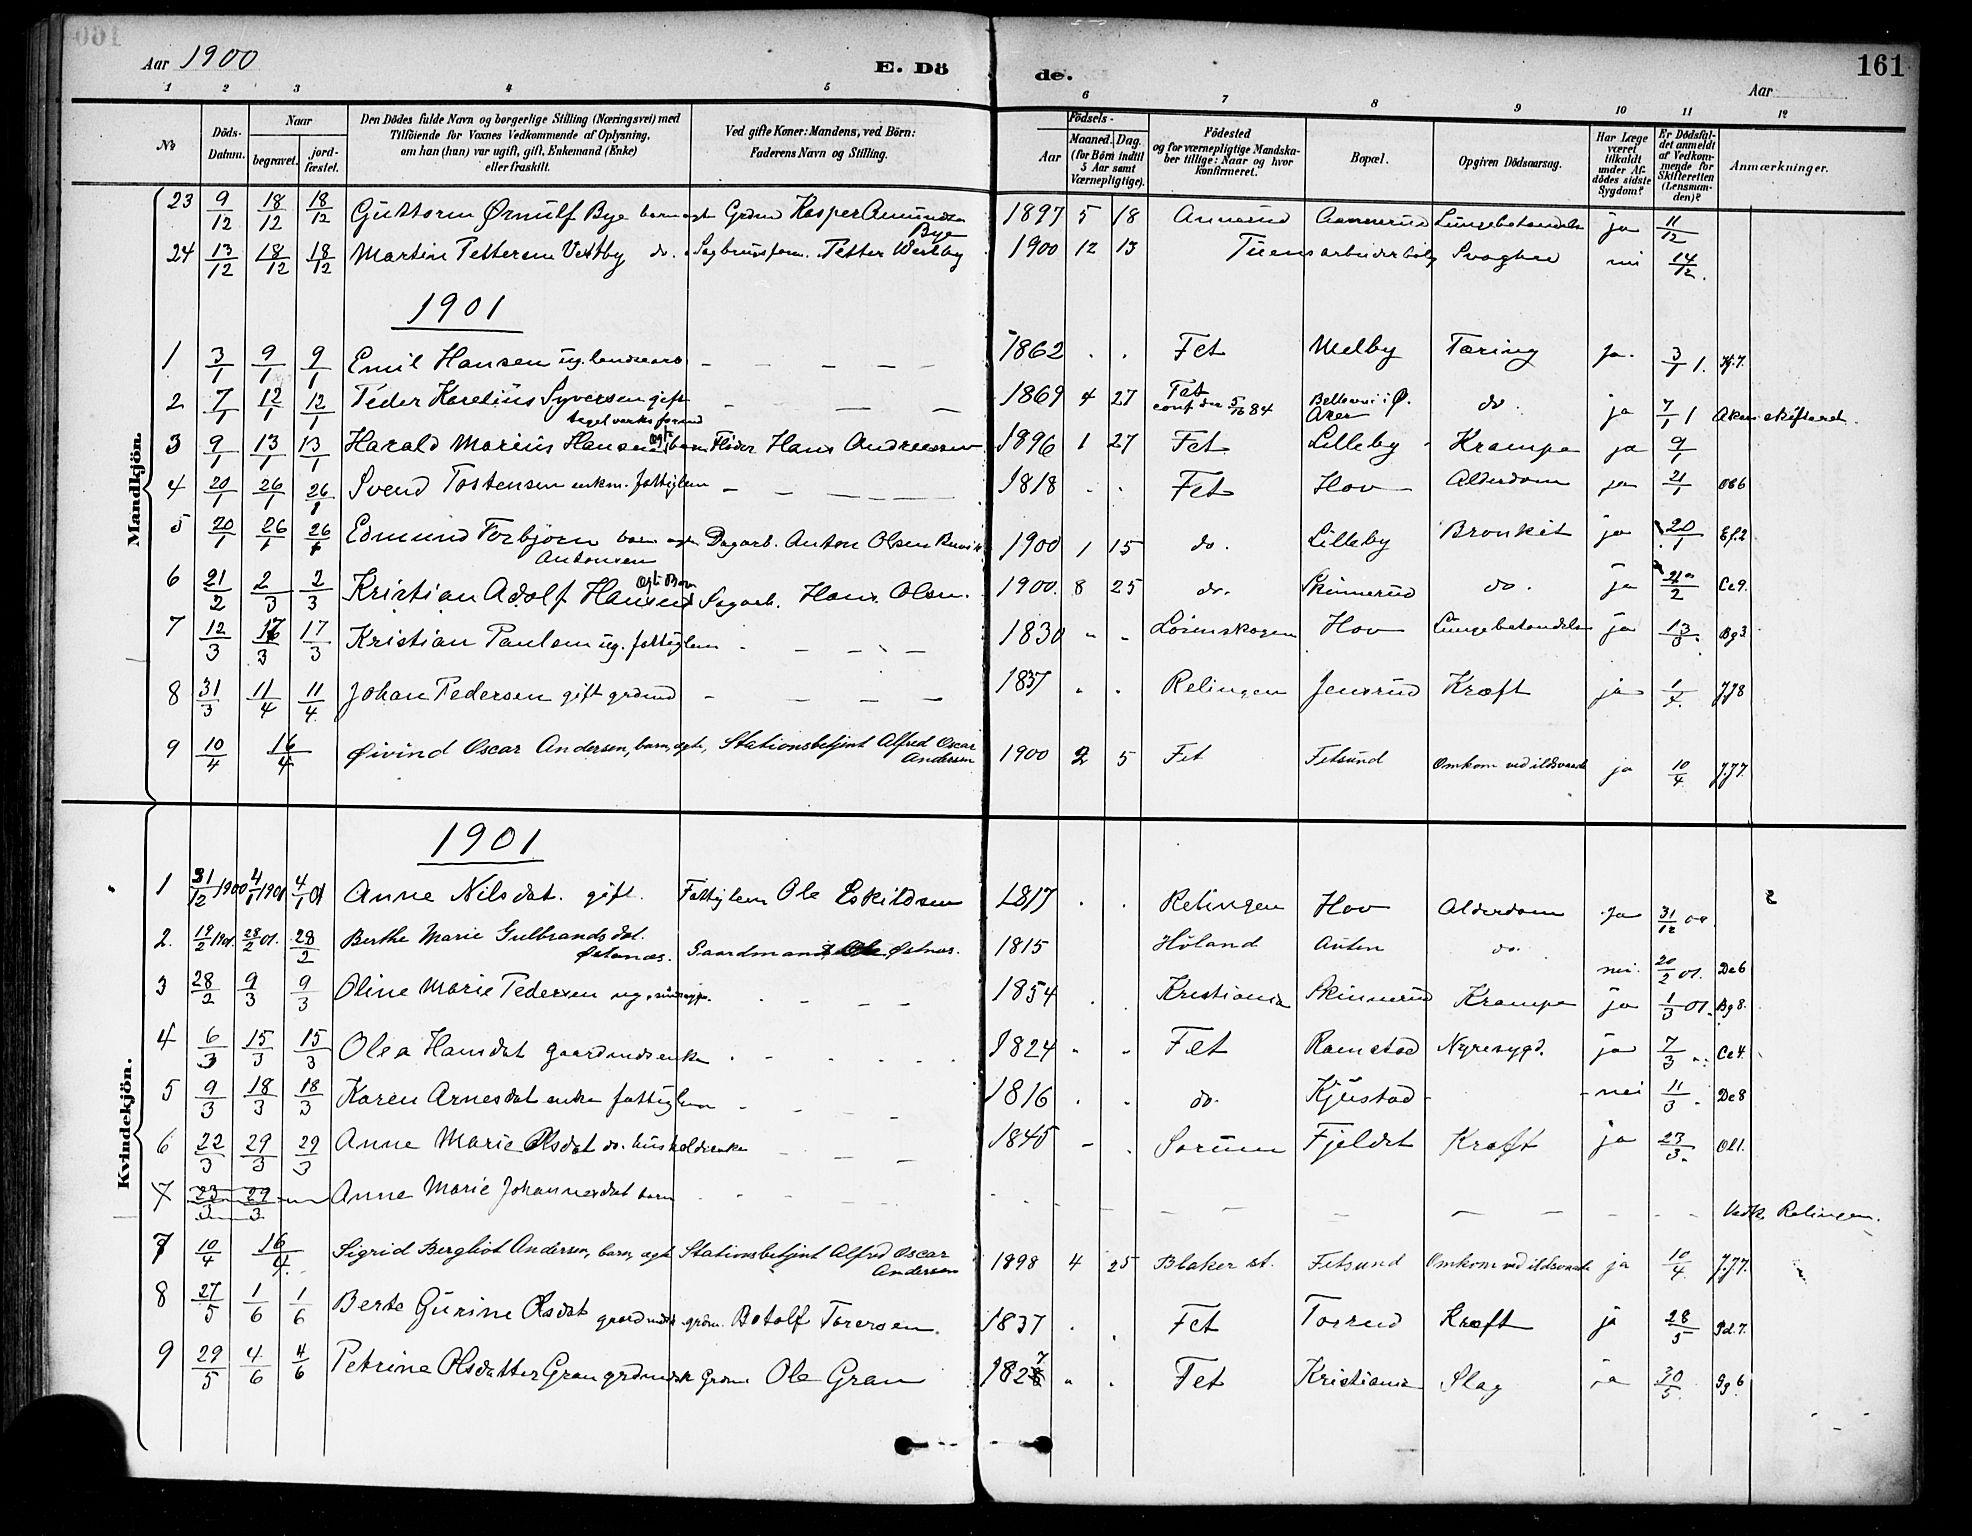 Aar 1900
E. Dö
de.
161
Aar
1 2 3 4 5 6 7 8 9 10 11 12
No
Döds-Datum.
Naar
begravet.
jordfæstet.
Den Dödes fulde Navn og borgerlige Stilling (Næringsvei) med
Tilföiende for Voxnes Vedkommende af Oplysning,
om han (hun) var ugift, gift, Enkemand (Enke)
eller fraskilt.
Ved gifte Koner: Mandens, ved Börn:
Faderens Navn og Stilling.
Födsels-
Aar
Maaned. Dag.
(for Börn indtil
5 Aar samt
Værnepligtige).
Födested
og for værnepligtige Mandskaber tillige: Naar og hvor
konfirmeret.
Bopæl.
Opgiven Dödsaarsag.
Har Læge
været
tilkaldt
under Afdödes sidste
Sygdom?
Er Dödsfaldet anmeldt
af Vedkommende for
Skifteretten
(Lensmanden)?
Anmærkninger.
Mandkjön.
23 9/12 18/12 18/12 Guttorm Ørnulf Bye barn agte Grdmd Kasper Amundsen Bye 1897 5 18 Annerud Aannerud Lungebetændelse ja 11/12
24 13/12 18/12 18/12 Martin Pettersen Vestby do. Sagbrugsform. Petter Westby 1900 12 13 Tuens arbeiderbolig Svaghed nei 14/12.
1901
1 3/1 9/1 9/1 Emil Hansen ug. landsarb - - - - - 1862 . . Fet Melby Tæring ja. 3/1 1.
2 7/1 12/1 12/1 Peder Karelius Syversen gift teglverksformd 1869 4 27 Fet conf. der 5/10 84 Bellevue i Ø. Aker do. ja 7/1 1 Akers skifteret.
3 9/1 13/1 13/1 Harald Marius Hansen agte barn Fløder Hans Andreassen 1896 1 27 Fet Lilleby Krampe ja 9/1
4 20/1 26/1 26/1 Svend Tostensen enkm. fattiglem 1818 . . Fet Hov Alderdom ja 21/1
5 20/1 26/1 26/1 Edmund Torbjørn Antonsen barn agte Dagarb. Anton Olsen 1900 1 15 do. Lilleby Bronkit ja 20/1 Ef.2
6 21/2 2/3 2/3 Kristian Adolf Hansen Agte Barn Sagarb. Hans Olsen. 1900. 8 25 do. Skinnerud do. ja 21/2 Ce9.
7 12/3 17/3 17/3 Kristian Paulsen ug. fattiglem 1830 " " Lørenskogen Hov Lungebetændelse ja 13/3. Bg3
8 31/3 11/4 11/4 Johan Pedersen gift grdmd 1837 . . Relingen Jensrud Kræft ja 1/4. JJ8
9 10/4 16/4 Øivind Oscar Andersen, barn, agte, Stationsbetjent Alfred Oscar Andersen 1900 2 5 Fet Fetsund Omkom ved ildsvaade ja 10/4 J.J7.
Kvindekjön.
1901
1 31/12 1900 4/1 1901 4/1 01 Anne Nilsdat. gift. Fattiglem Ole Eskildsen 1817 . . Relingen Hov Alderdom ja 31/12 00
2. 19/2 1901. 28/2 01. 28/2 Berthe Marie Gulbrandsdat. Østanæs. Gaardmand Ole Østnæs. 1815 Høland Auten do. nei. 20/2 01. De6
3 28/2 9/3 9/3 Oline Marie Pedersen ug. 1854 . Kristiania Skinnerud Krampe ja 1/3 01. Bg8.
4 6/3 15/3 15/3 Olea Hansdat gaardmdsenke 1824 " " Fet Ramstad Nyresygd. ja 7/3 Ce4.
5 9/3 18/3 18/3 Karen Arnesdat enke fattiglem 1816 . . do. Kjustad - - nei 11/3. De8
6 22/3 29/3 29/3 Anne Marie Olsdat do. husholderske 1845 - . Sørum Fjeldet Kræft ja 23/3. Ol1.
7 23/3 29/3 Anne Marie Johannesdat barn Vedk. Relingen.
7 10/4 16/4 Sigrid Bergliot Andersen, barn, agte Stationsbetjent Alfred Oscar Andersen 1898 4 25 Blaker st. Fetsund Omkom ved ildsvaade ja 10/4 J.J7.
8 27/5 1/6 1/6 Berte Gurine Olsdat gaardmdsk. grdm. Botolf Torersen. 1837 . . Fet Torrud Kræft ja 28/5
9 29/5 4/6 4/6 Petrine Olsdatter Gran grdmdsk Grdm. Ole Gran 1827 " . Fet Kristiania Slag ja 30/5.